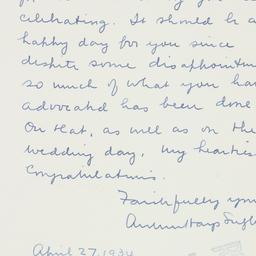 celebrating. It should be a
happy day for you since
despite some disappointm
so much of what you ha
advocated has been done
On that, as well as on the
wedding day, my hearties
congratulations.
Faithfully you
Arthur Hays Sulz
April 27, 1934